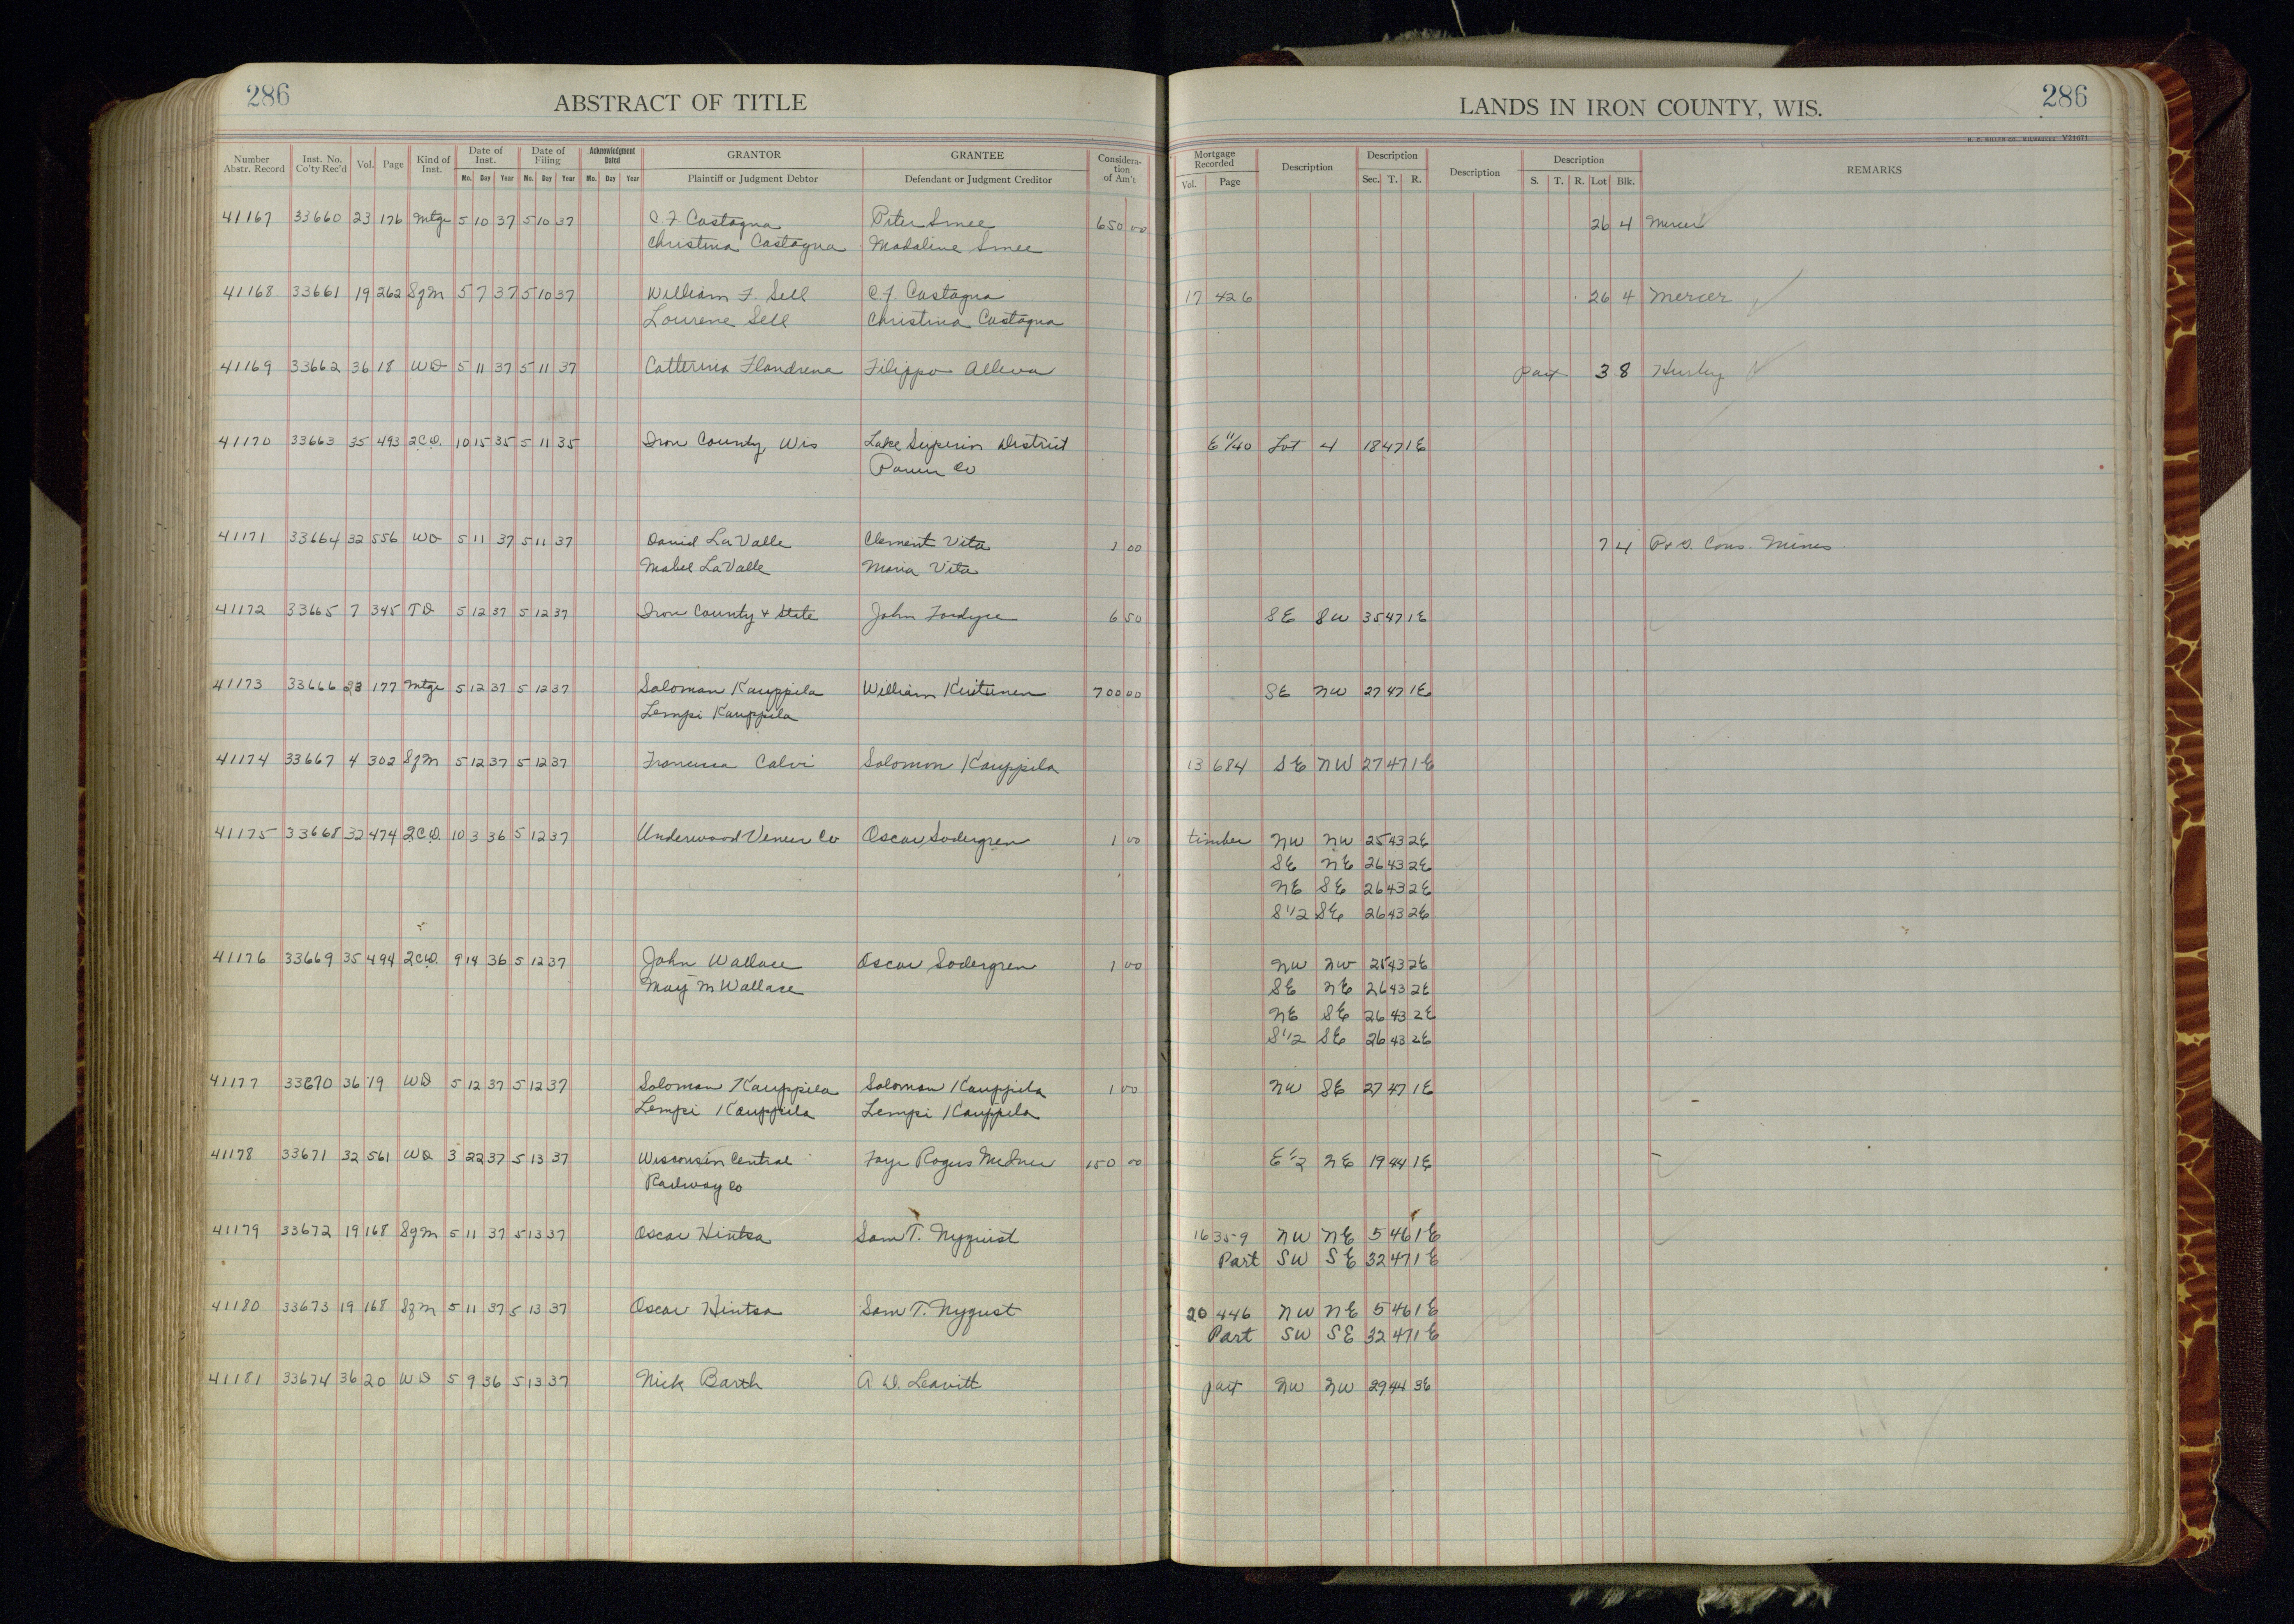 286 ABSTRACT OF TITLE LANDS IN IRON COUNTY, WIS. 286
Number Abstr. Record Inst. No. Co'ty Rec'd Vol. Page Kind of Inst. Date of Inst. Date of Filing Acknowledgment Dated GRANTOR GRANTEE Considera-tion of Am't Mortgage Recorded Description Description Description Description REMARKS
Mo. Day Year Mo. Day Year Mo. Day Year Plaintiff or Judgment Debtor Defendant or Judgment Creditor Vol. Page Sec. T. R. S. T. R. Lot Blk.
41167 33660 23 176 Mtge 5 10 37 5 10 37 C. F. Castagna Peter Smee 650 00 26 4 Mercer
Christina Castagna Madaline Smee
41168 33661 19 262 SgM 5 7 37 5 10 37 William F. Sell C. F. Castagna 17 426 26 4 Mercer
Lourene Sell Christina Castagna
41169 33662 36 18 WD 5 11 37 5 11 37 Catterina Flandrena Filippo Alleva Part 3 8 Hurley
41170 33663 35 493 2CD. 10 15 35 5 11 35 Iron County Wis Lake Superior District E 11/40 Lot 4 18 47 1E
Power Co
41171 33664 32 556 WD 5 11 37 5 11 37 David LaValle Clement Vita 1 00 7 4 Cons. Mines
Mabel LaValle Maria Vita
41172 33665 7 345 TD 5 12 37 5 12 37 Iron County & State John Fordyce 6 50 SE SW 35 47 1E
41173 33666 23 177 Mtge 5 12 37 5 12 37 Soloman Kauppila William Kustunen 700 00 SE NW 27 47 1E
Lempi Kauppila
41174 33667 4 302 SgM 5 12 37 5 12 37 Calvi Solomon Kauppila 13 684 SE NW 27 47 1E
41175 33668 32 474 2CD. 10 3 36 5 12 37 Underwood Veneer Co Oscar Sodergren 1 00 timber NW NW 25 43 2E
SE NE 26 43 2E
NE SE 26 43 2E
S 1/2 SE 26 43 2E
41176 33669 35 494 2CD. 9 14 36 5 12 37 John Wallace Oscar Sodergren 1 00 NW NW 25 43 2E
May M Wallace SE NE 26 43 2E
NE SE 26 43 2E
S 1/2 SE 26 43 2E
41177 33670 36 19 WD 5 12 37 5 12 37 Soloman Kauppila Soloman Kauppila 1 00 NW SE 27 47 1E
Lempi Kauppila Lempi Kauppila
41178 33671 32 561 WD 3 22 37 5 13 37 Wisconsin Central Faye Rogers 150 00 E 1/2 NE 19 44 1E
Railway Co
41179 33672 19 168 SgM 5 11 37 5 13 37 Oscar Hintsa Sam T. Nyquist 16 359 NW NE 5 46 1E
Part SW SE 32 47 1E
41180 33673 19 168 SgM 5 11 37 5 13 37 Oscar Hintsa Sam T. Nyqust 20 446 NW NE 5 46 1E
Part SW SE 32 47 1E
41181 33674 36 20 WD 5 9 36 5 13 37 Nick Barth A. D. Leavitt part NW NW 29 44 3E